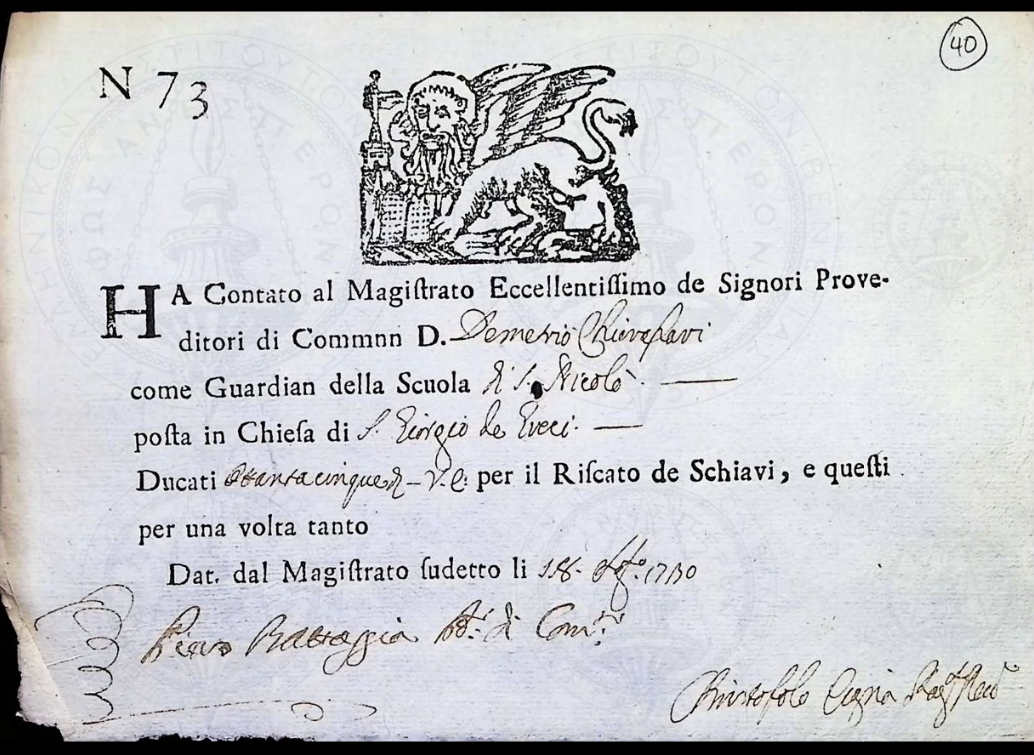 40
N 73
HA Contato al Magiſtrato Eccellentiſſimo de Signori Prove-
ditori di Commnn D. Demetrio
come Guardian della Scuola di S. Nicolò
poſta in Chieſa di S. Giorgio de Greci.
Ducati Ottantacinque per il Riſcato de Schiavi, e queſti
per una volta tanto
Dat. dal Magiſtrato ſudetto li 18. 1730
Piero Battaggia di Com.
Christofolo